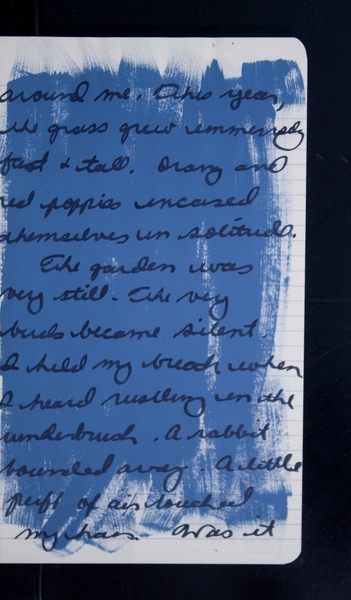 around me. This year,
the grass grew immensely
fast & tall. Orangy and
red poppies encased
themselves in solitude.
The garden was
very still. The very
birds became silent.
I held my breath when
I heard rustling in the
underbrush. A rabbit
bounded away. A little
puff of air touched
my hair. Was it